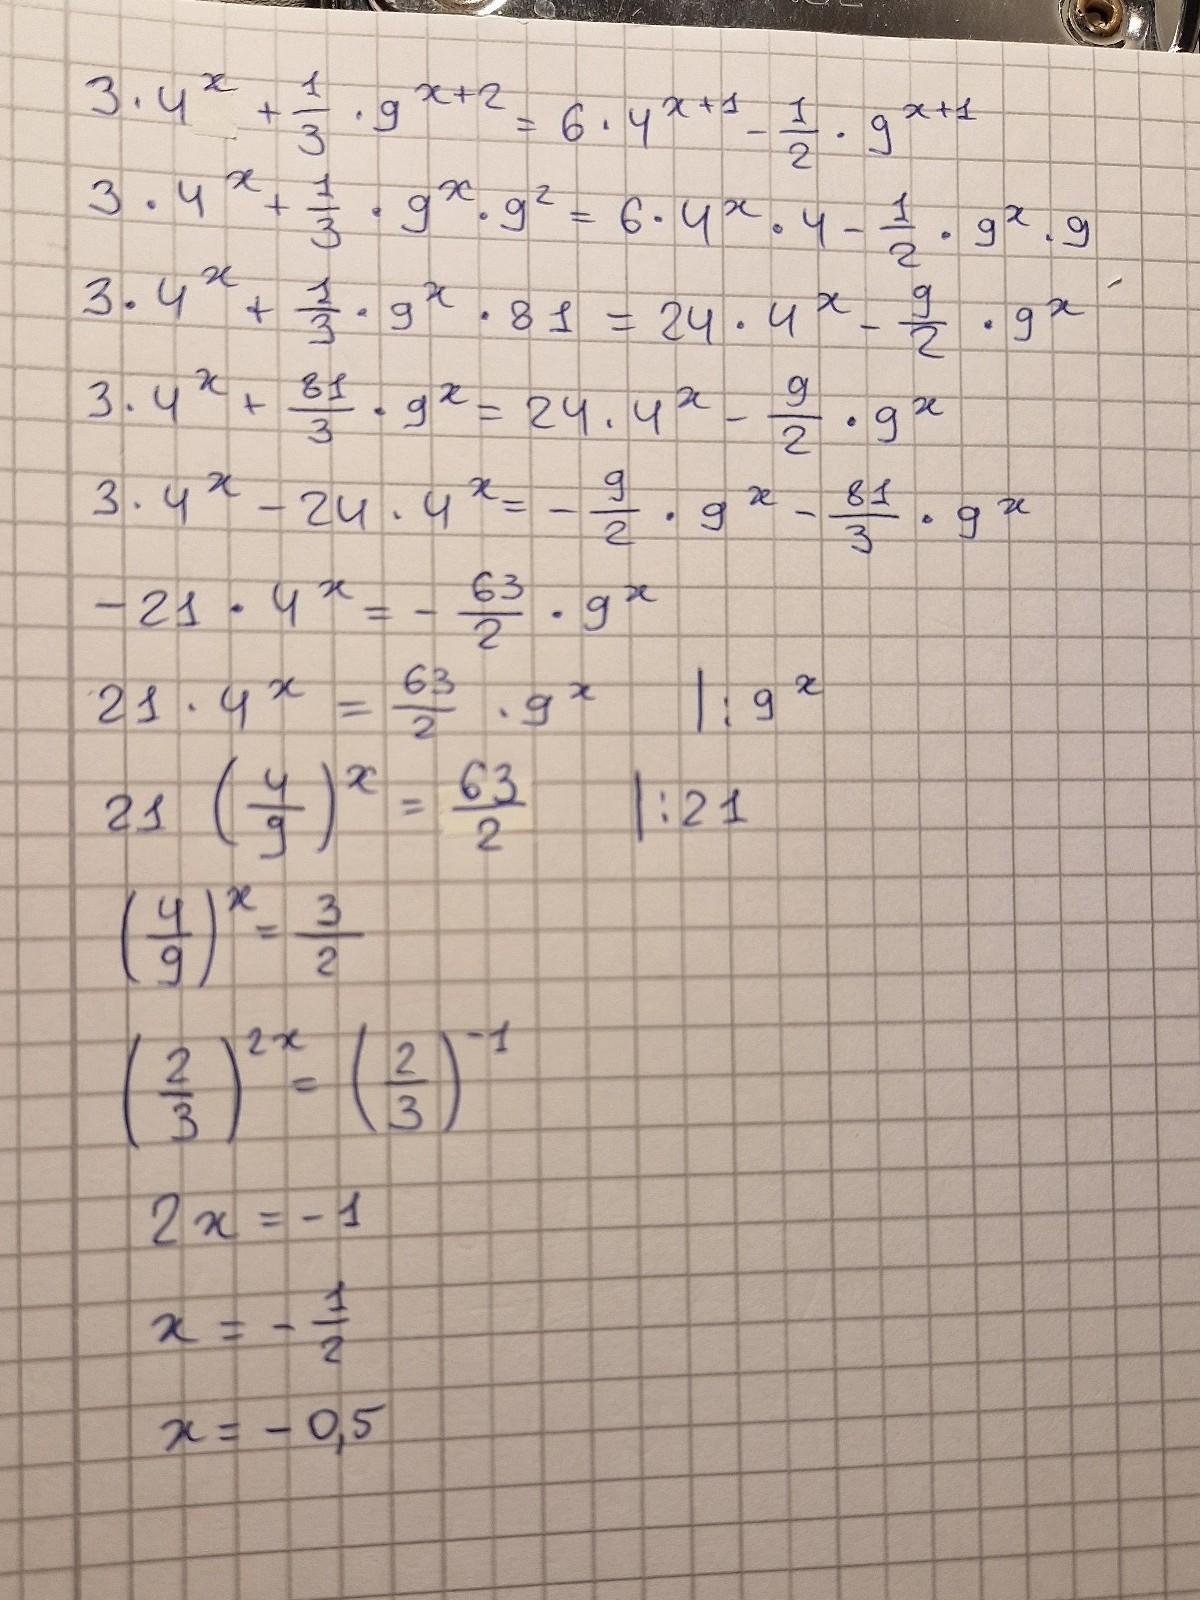 3 · 4^x + 1/3 · 9^(x+2) = 6 · 4^(x+1) - 1/2 · 9^(x+1)
3 · 4^x + 1/3 · 9^x · 9^2 = 6 · 4^x · 4 - 1/2 · 9^x · 9
3 · 4^x + 1/3 · 9^x · 81 = 24 · 4^x - 9/2 · 9^x
3 · 4^x + 81/3 · 9^x = 24 · 4^x - 9/2 · 9^x
3 · 4^x - 24 · 4^x = - 9/2 · 9^x - 81/3 · 9^x
-21 · 4^x = - 63/2 · 9^x
21 · 4^x = 63/2 · 9^x |: 9^x
21 (4/9)^x = 63/2 |: 21
(4/9)^x = 3/2
(2/3)^(2x) = (2/3)^(-1)
2x = -1
x = - 1/2
x = - 0,5